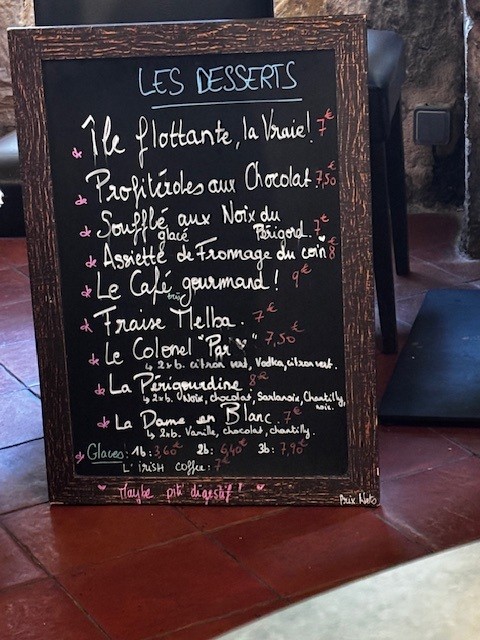 LES DESSERTS
Île flottante, la Vraie! 7€
Profitéroles aux Chocolat 7,50
Soufflé glacé aux Noix du Périgord. 7€
Assiette de Fromage du coin 8€
Le Café gourmand! 9€
Fraise Melba. 7€
Le Colonel "Par ♥" 7,50€
↳ 2xb. citron vert, Vodka, citron vert.
La Périgourdine 8€
↳ 2xb. Noix, chocolat, Chantilly, noix.
La Dame en Blanc 7€
↳ 2xb. Vanille, chocolat, chantilly.
Glaces: 1b: 3,60€ 2b: 6,40€ 3b: 7,90€
L'IRISH COFFEE: 7€
♥ Maybe piti digestif! ♥
Prix Nets